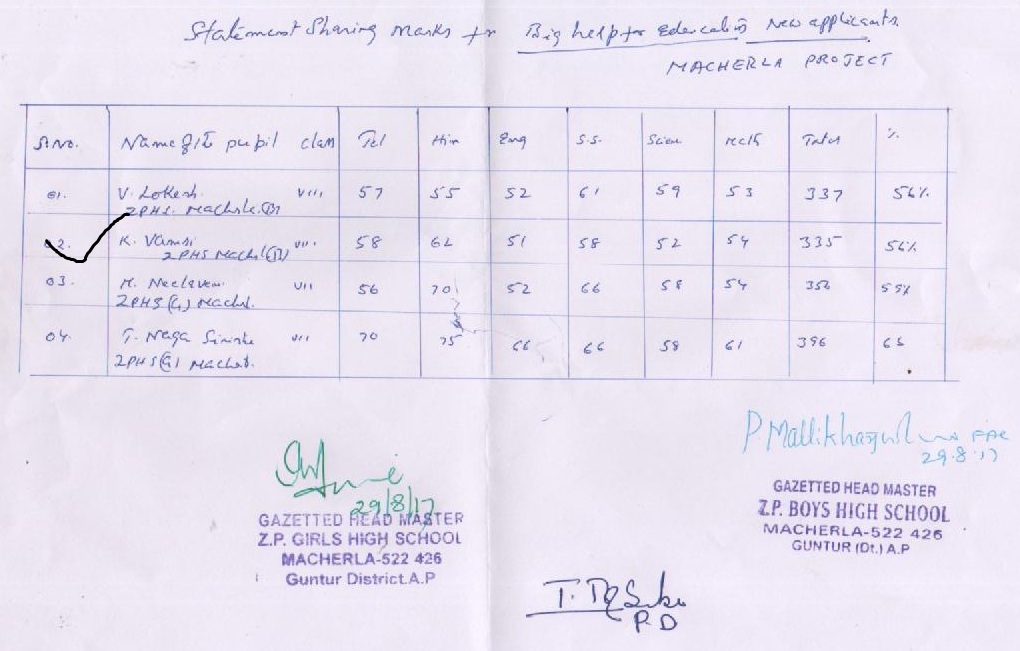 Statement Sharing Marks for Big help for Education New applicants.
MACHERLA PROJECT
Sl.No. Name of the pupil class Tel Hin Eng S.S. Scien Math Total %
01. V. Lokesh VIII 57 55 52 61 59 53 337 56%
ZPHS. Macherla (B)
02. K. Vamsi VII. 58 62 51 58 52 54 335 56%
ZPHS Machl (B)
03. M. Neelaveni VII 56 70 52 66 58 54 356 59%
ZPHS (G) Machel.
04. T. Naga VII 70 75 66 66 58 61 396 66
ZPHS (G) Machel.
P. Mallikharjuna FAC
29.8.17
29/8/17
GAZETTED HEAD MASTER
Z.P. BOYS HIGH SCHOOL
MACHERLA-522 426
GUNTUR (Dt.) A.P
GAZETTED HEAD MASTER
Z.P. GIRLS HIGH SCHOOL
MACHERLA-522 426
Guntur District.A.P
P.D